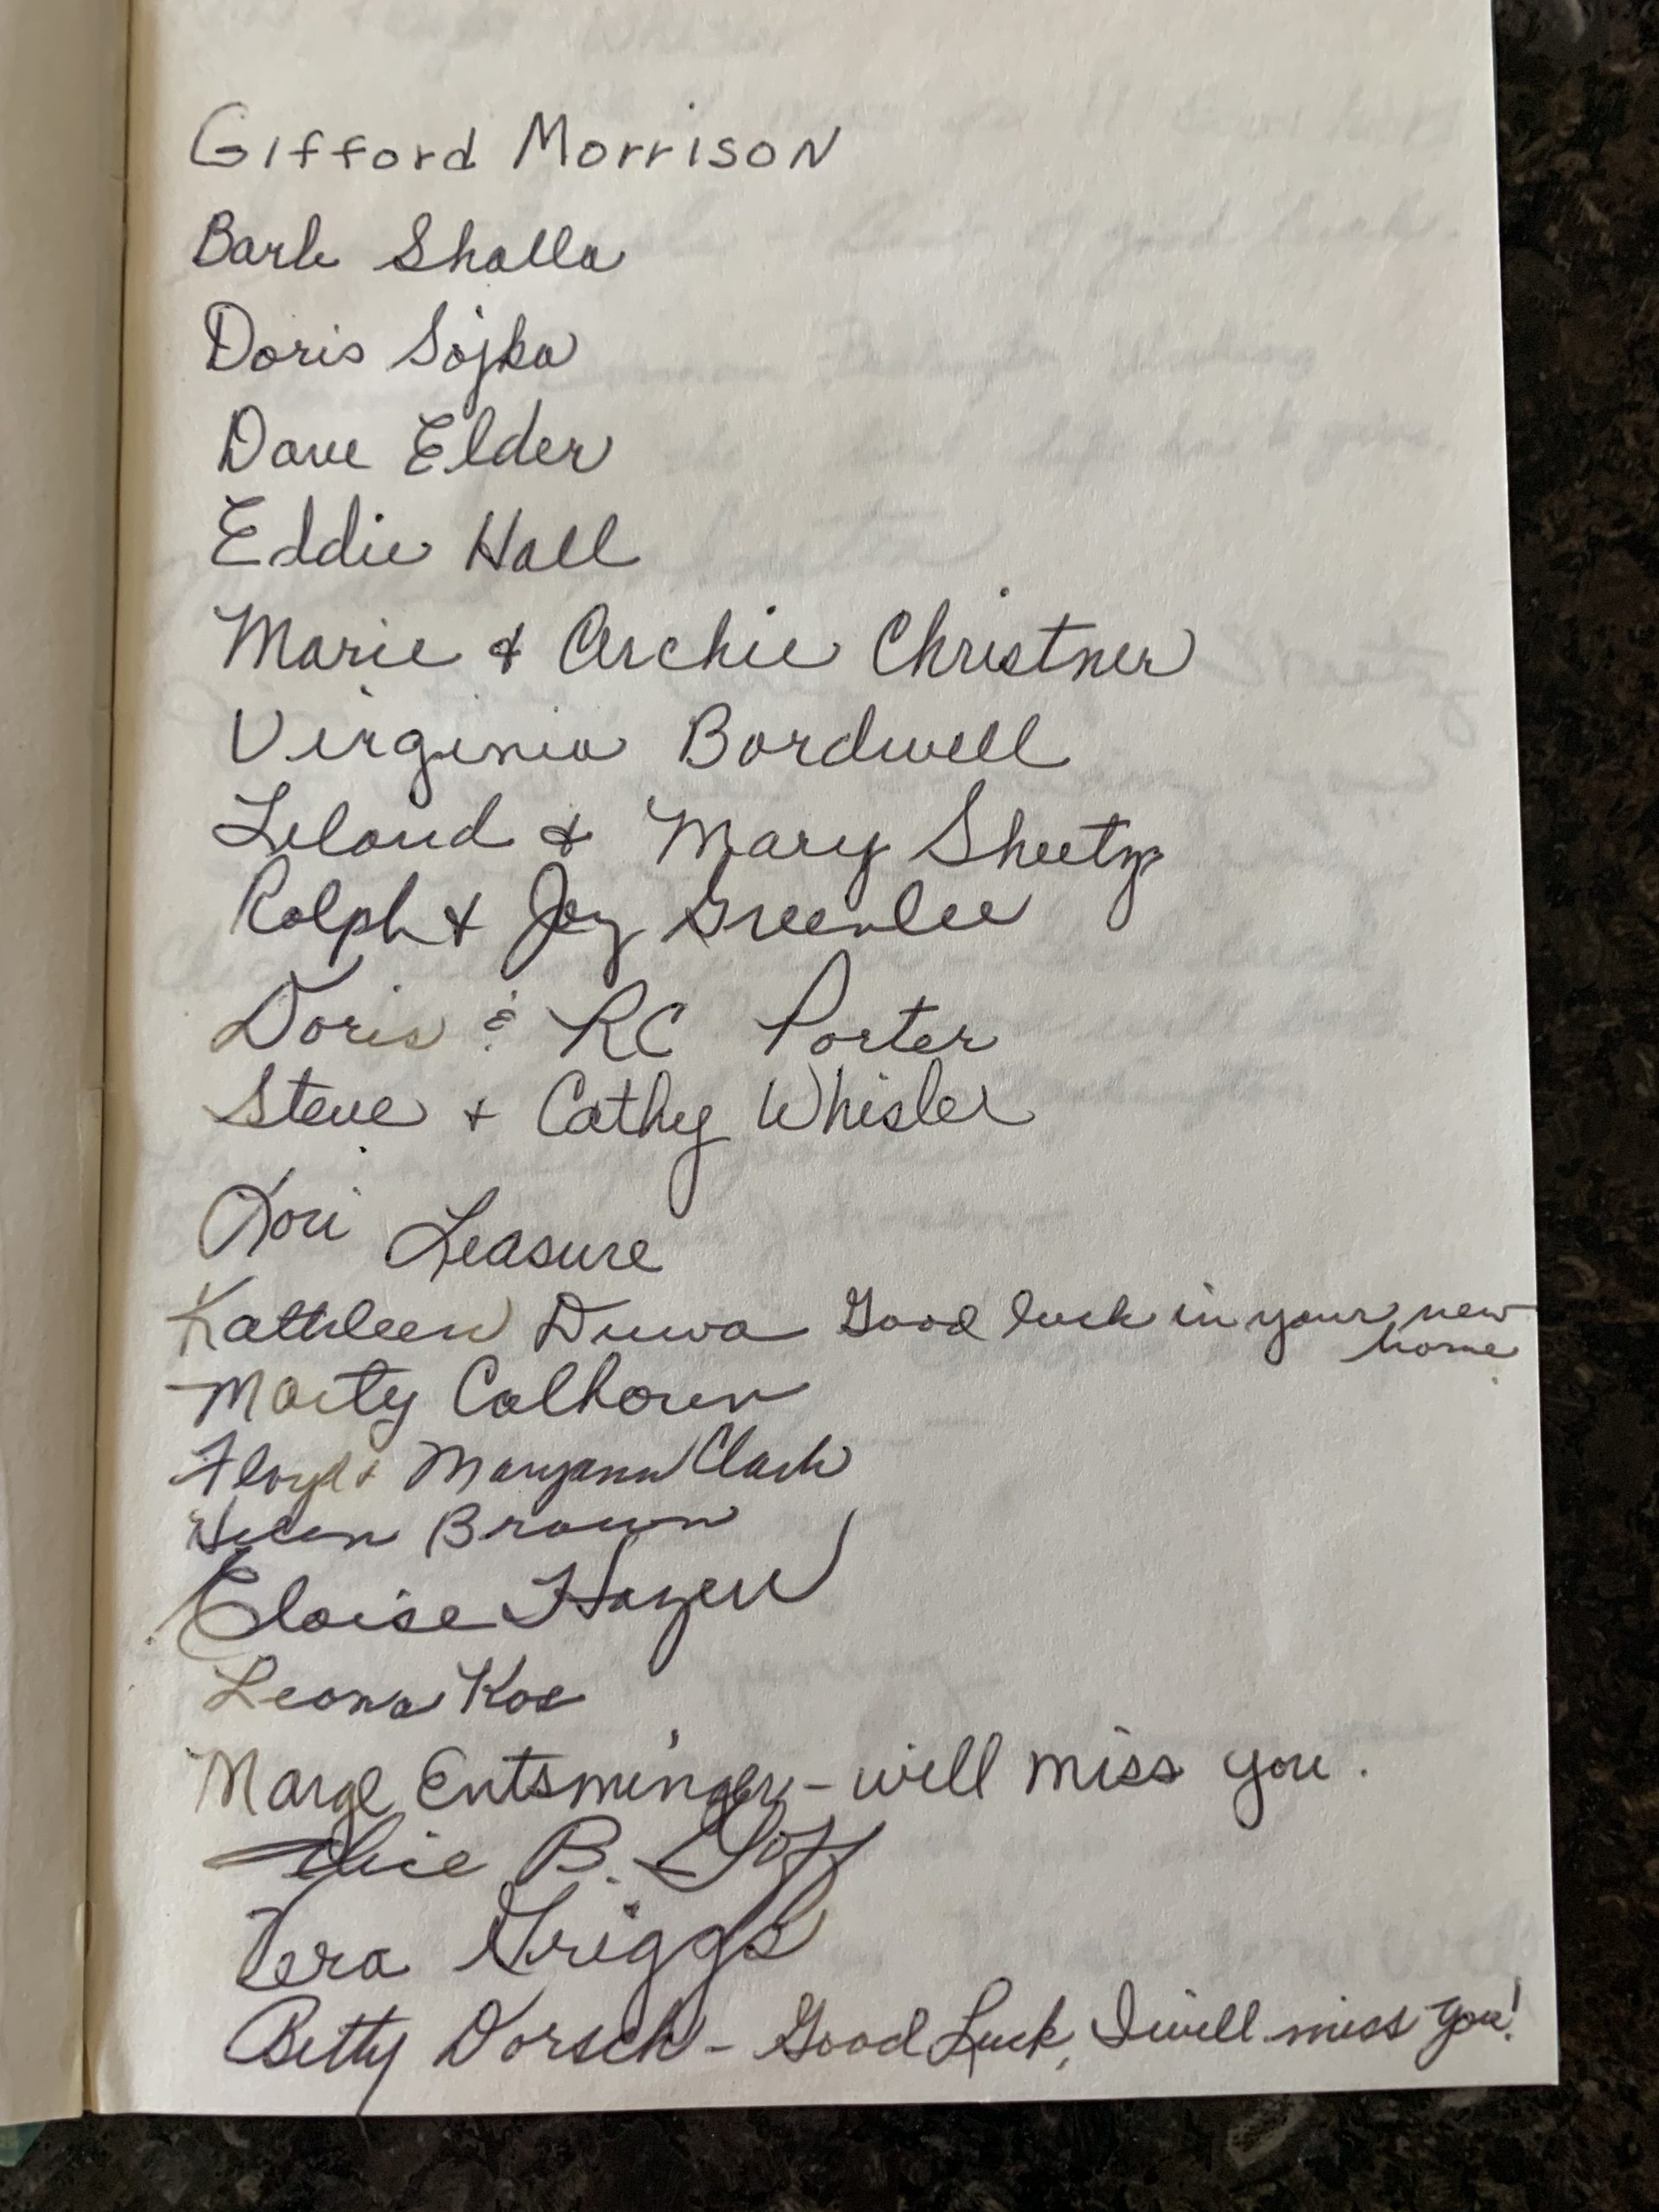 Gifford Morrison
Barb Shalla
Doris Sojka
Dave Elder
Eddie Hall
Marie & Archie Christner
Virginia Bordwell
Leland & Mary Sheetz
Ralph & Joy Greenlee
Doris & RC Porter
Steve + Cathy Whisler
Lori Leasure
Kathleen Duwa Good luck in your new
home
Marty Calhoun
Floyd & Maryann Clark
Helen Brown
Eloise Hazen
Leona Kos
Marge Entsminger - will miss you.
Alice B.
Vera Griggs
Betty Dorsch - Good Luck, I will miss you!